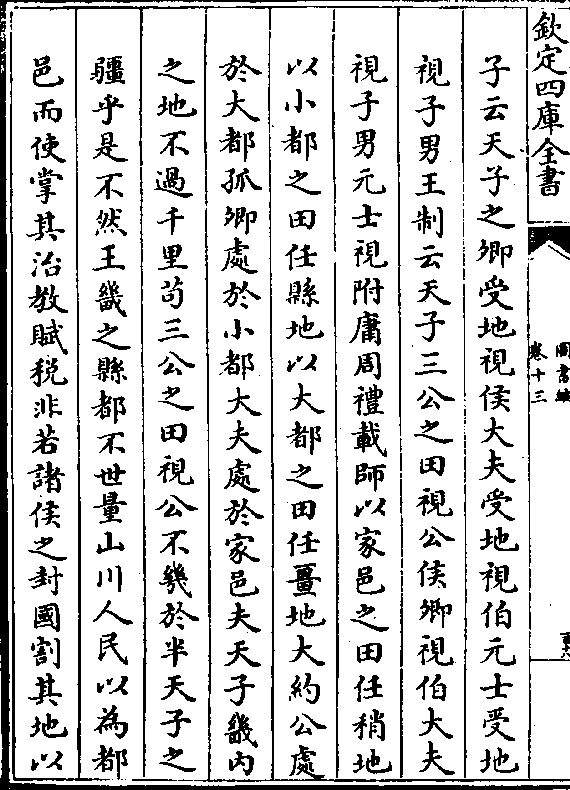 欽定四庫全書
圖書編
卷十三
子云天子之卿受地視侯大夫受地視伯元士受地
視子男王制云天子三公之田視公侯卿視伯大夫
視子男元士視附庸周禮載師以家邑之田任稍地
以小都之田任縣地以大都之田任畺地大約公處
於大都孤卿處於小都大夫處於家邑夫天子畿內
之地不過千里苟三公之田視公不幾於半天子之
疆乎是不然王畿之縣都不世量山川人民以為都
邑而使掌其治教賦稅非若諸侯之封國割其地以